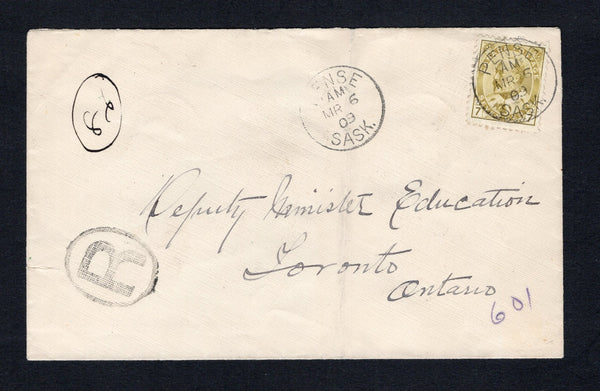 PENSE
AM
MR 6
09
SASK.
PENSE
AM
MR 6
09
SASK.
28
Deputy Minister Education
Toronto
Ontario
R
601